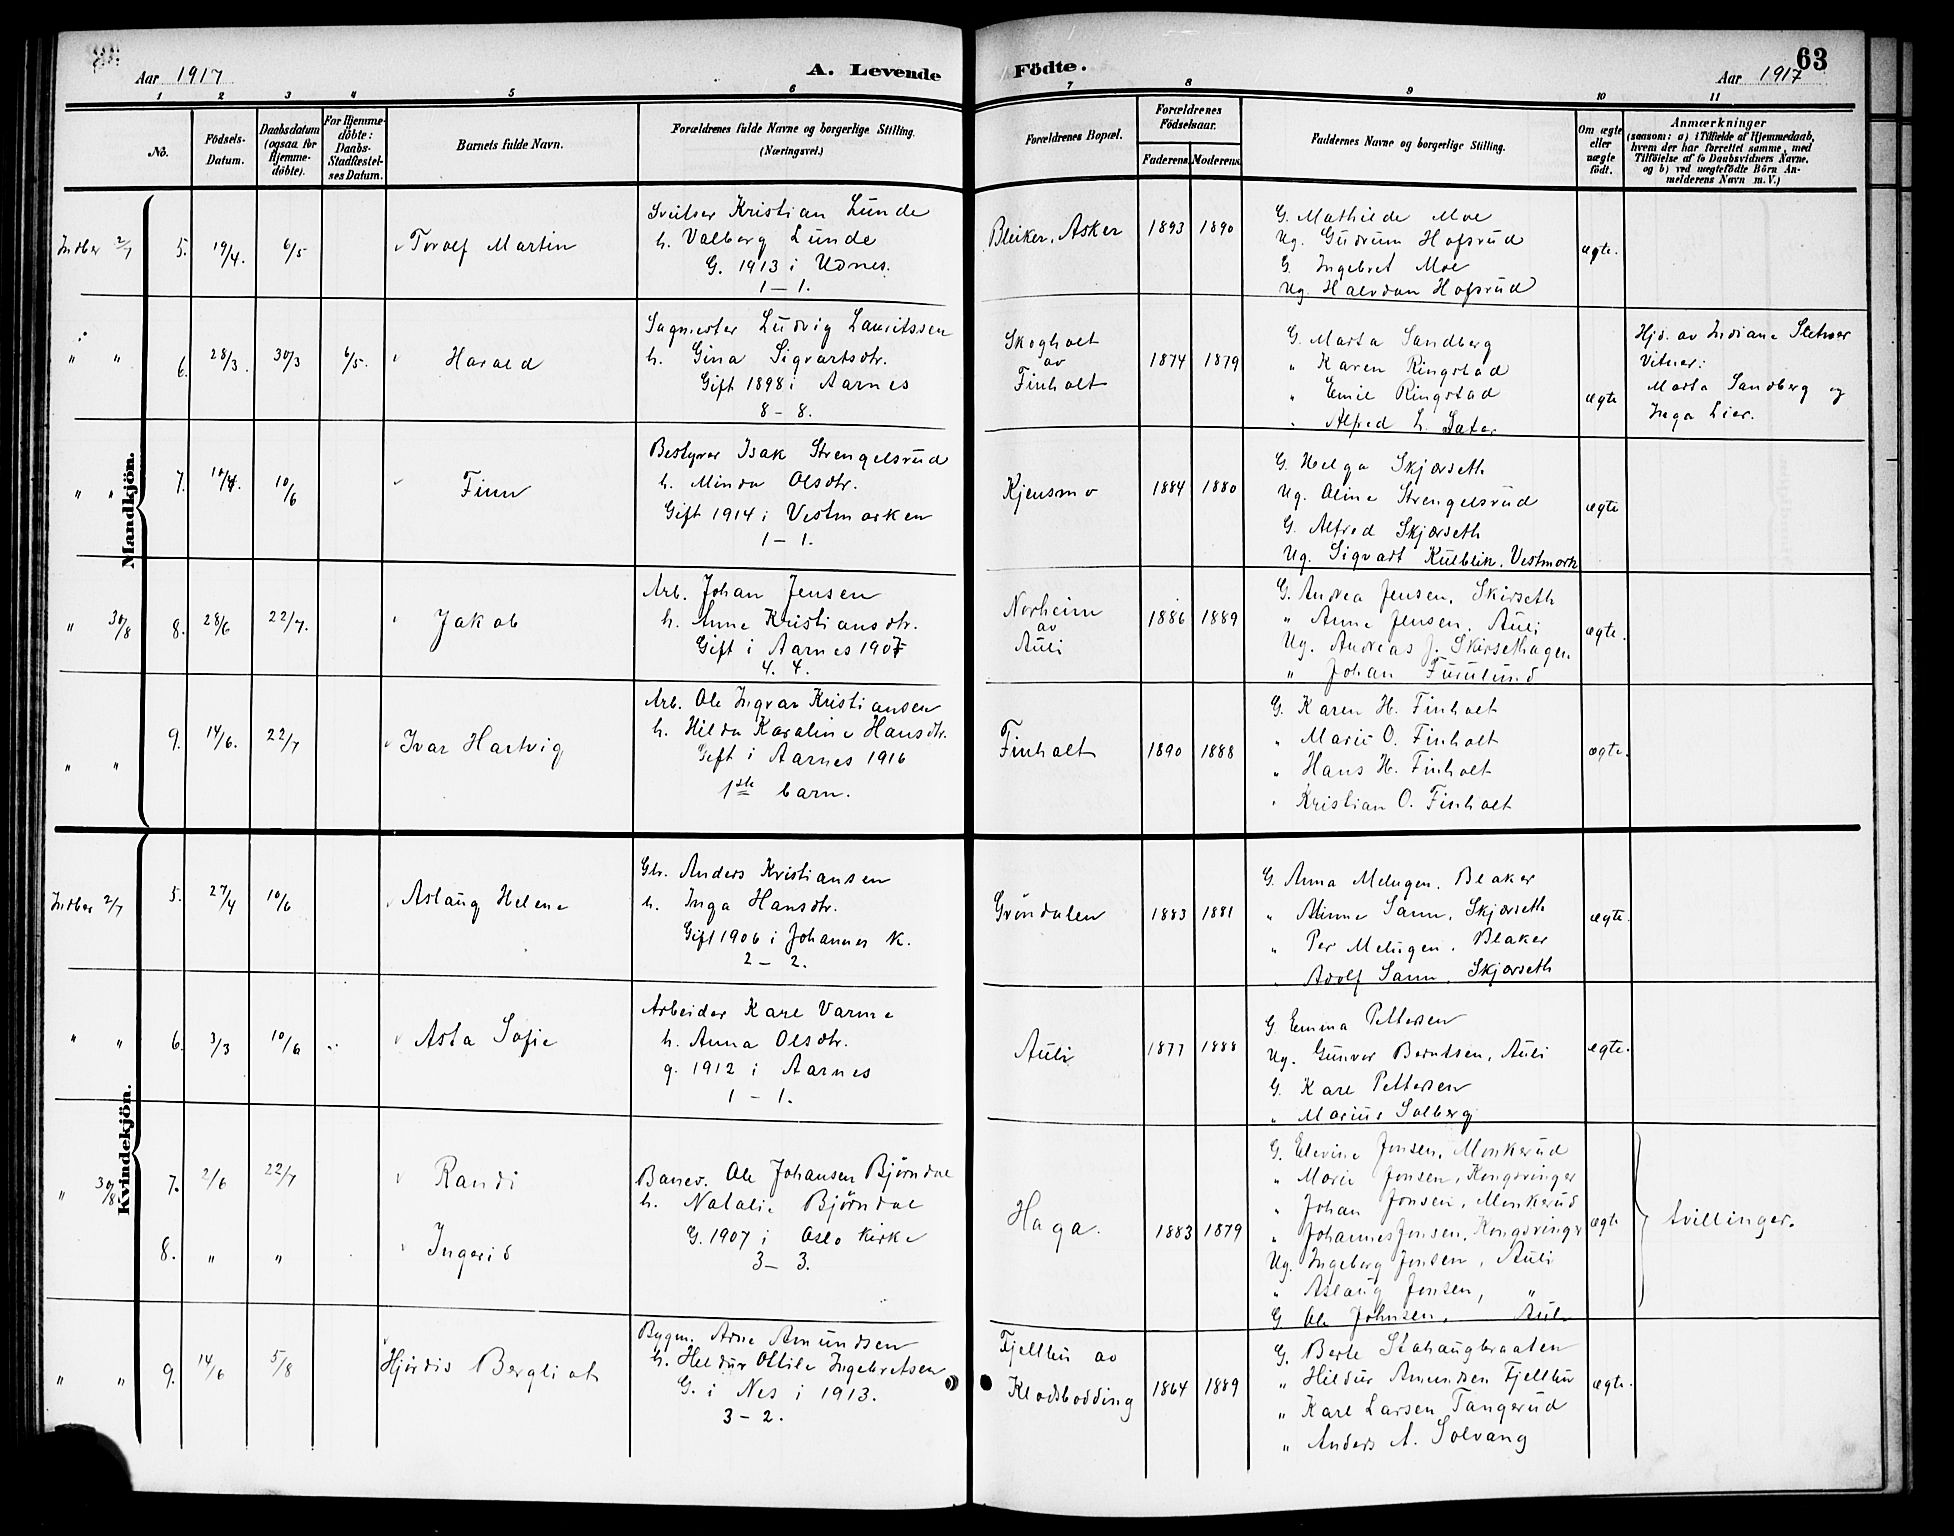 Aar 1917
A. Levende
Födte.
63
Aar 1917
1 2 3 4 5 6 7 8 9 10 11
No.
Födsels-Datum.
Daabsdatum (ogsaa for Hjemme-döbte).
For Hjemme-döbte: Daabs-Stadfæstel-ses Datum.
Barnets fulde Navn.
Forældrenes fulde Navne og borgerlige Stilling.
(Næringsvei.)
Forældrenes Bopæl.
Forældrenes Födselsaar.
Faderens. Moderens.
Faddernes Navne og borgerlige Stilling.
Om ægte eller uægte födt.
Anmærkninger
(saasom: a) i Tilfælde af Hjemmedaab, hvem der har forrettet samme, med Tilföielse af to Daabsvidners Navne. og b) ved uægtefödte Börn An-melderens Navn m. V.)
Mandkjön.
Indber 2/7 5. 19/4. 6/5 Torolf Martin
Sveitser Kristian Lunde
h. Valborg Lunde
G. 1913 i Udnes.
1 — 1.
Bleiker, Asker 1893 1890
G. Mathilde Moe
Ug. Gudrun Hofsrud
G. Ingebret Moe
Ug. Halvdan Hofsrud
ægte.
" " 6. 28/3. 30/3 6/5. Harald
Sagmester Ludvig Lauritssen
h. Gina Sigvartsdtr.
Gift 1898 i Aarnes
8 - 8.
Skogholt
av
Finholt
1874 1879
G. Marta Sandberg
" Karen Ringstad
" Emil Ringstad
" Alfred L. Sater
ægte
Hjd. av Indiane Stenser
Vitner:
Marta Sandberg og
Inga Lier.
" " 7. 10/4. 10/6 Finn
Bestyrer Isak Strengelsrud
h. Minda Olsdtr.
Gift 1914 i Vestmarken
1 - 1.
Kjensmo 1884 1880
G. Helga Skjørseth
Ug. Oline Strengelsrud
G. Alfred Skjørseth
Ug. Sigvart Kulblik, Vestmark
ægte
" 30/8 8. 28/6 22/7. Jakob
Arb. Johan Jensen
h. Anne Kristiansdtr.
Gift i Aarnes 1907
4. 4.
Norheim
av
Auli
1886 1889
G. Andrea Jensen, Skirseth
" Anna Jensen, Auli
Ug. Andreas J. Skirsethagen
" Johan Furulund
ægte.
" " 9. 14/6. 22/7 Ivar Hartvig
Arb. Ole Ingvar Kristiansen
h. Hilda Karoline Hansdtr.
Gift i Aarnes 1916
1ste barn.
Finholt 1890 1888
G. Karen H. Finholt
" Marie O. Finholt
" Hans H. Finholt
" Kristian O. Finholt
ægte.
Kvindekjön.
Indber 2/7 5. 27/4 10/6 Aslaug Helene
Gb. Anders Kristiansen
h. Inga Hansdtr.
Gift 1906 i Johannes K.
2 — 2.
Grøndalen 1883 1881
G. Anna Melugen, Blaker
" Minna Sann, Skjørseth
" Per Melugen, Blaker
" Adolf Sann, Skjørseth
ægte.
" " 6. 3/3 10/6 Asta Sofie
Arbeider Karl Varme
h. Anna Olsdtr.
g. 1912 i Aarnes
1 - 1.
Auli 1877 1888
G. Emma Pettersen
Ug. Gunvor Berntsen, Auli
G. Karl Pettersen
" Marius Solberg
ægte.
" 30/8 7. 2/6 22/7 Randi
8. " " Ingerid
Banev. Ole Johansen Bjørndal
h. Natalie Bjørndal
G. 1907 i Oslo Kirke
3 — 3.
Haga. 1883 1879
G. Elevine Jonsen, Monkerud
" Marie Jonsen, Kongsvinger
" Johan Jonsen, Monkerud
" Johannes Jonsen, Kongsvinger
Ug. Ingeborg Jonsen, Auli
" Aslaug Jonsen, "
G Ole Johnsen, Auli
ægte
tvillinger.
" " 9. 14/6 5/8 Hjørdis Bergliot
Bygm. Arne Amundsen
h. Heldur Ottile Ingebretsen
G. i Nes i 1913.
3 - 2.
Fjellhu av
Klodsbodding
1864 1889
G. Berte Stahaugbraaten
" Hildur Amundsen Fjellhu
" Karl Larsen Tangerud
" Anders A. Solvang
ægte.